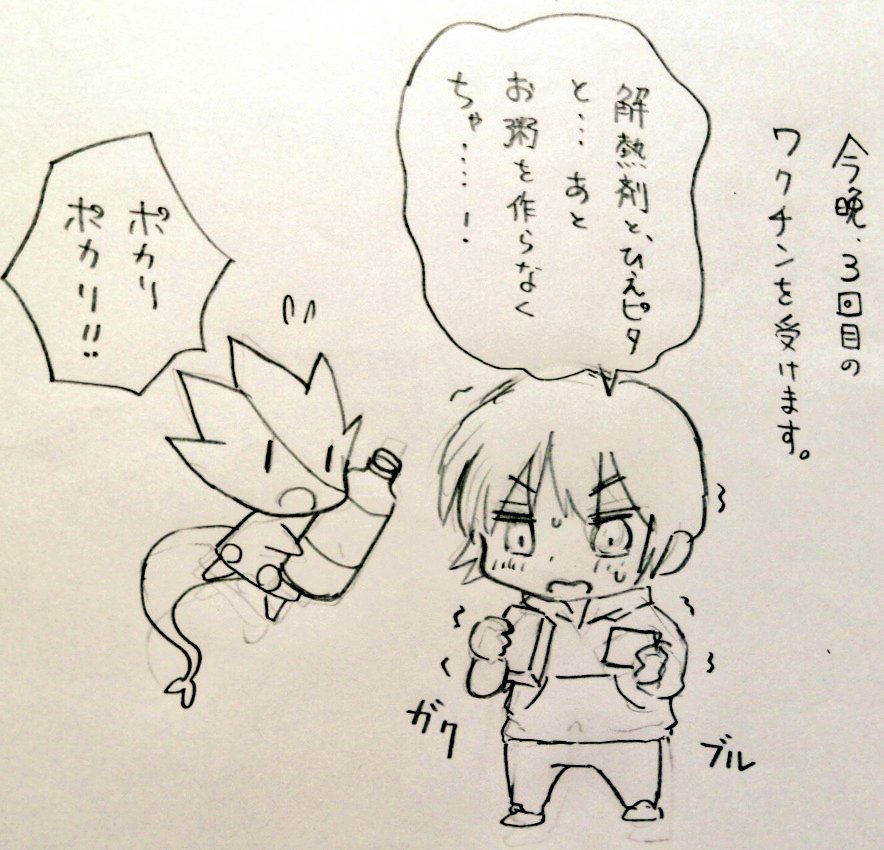 今晩、3回目の
ワクチンを受けます。
解熱剤と、ひえピタ
と…あと
お粥を作らなく
ちゃ……!
ポカリ
ポカリ!!
ガク
ブル